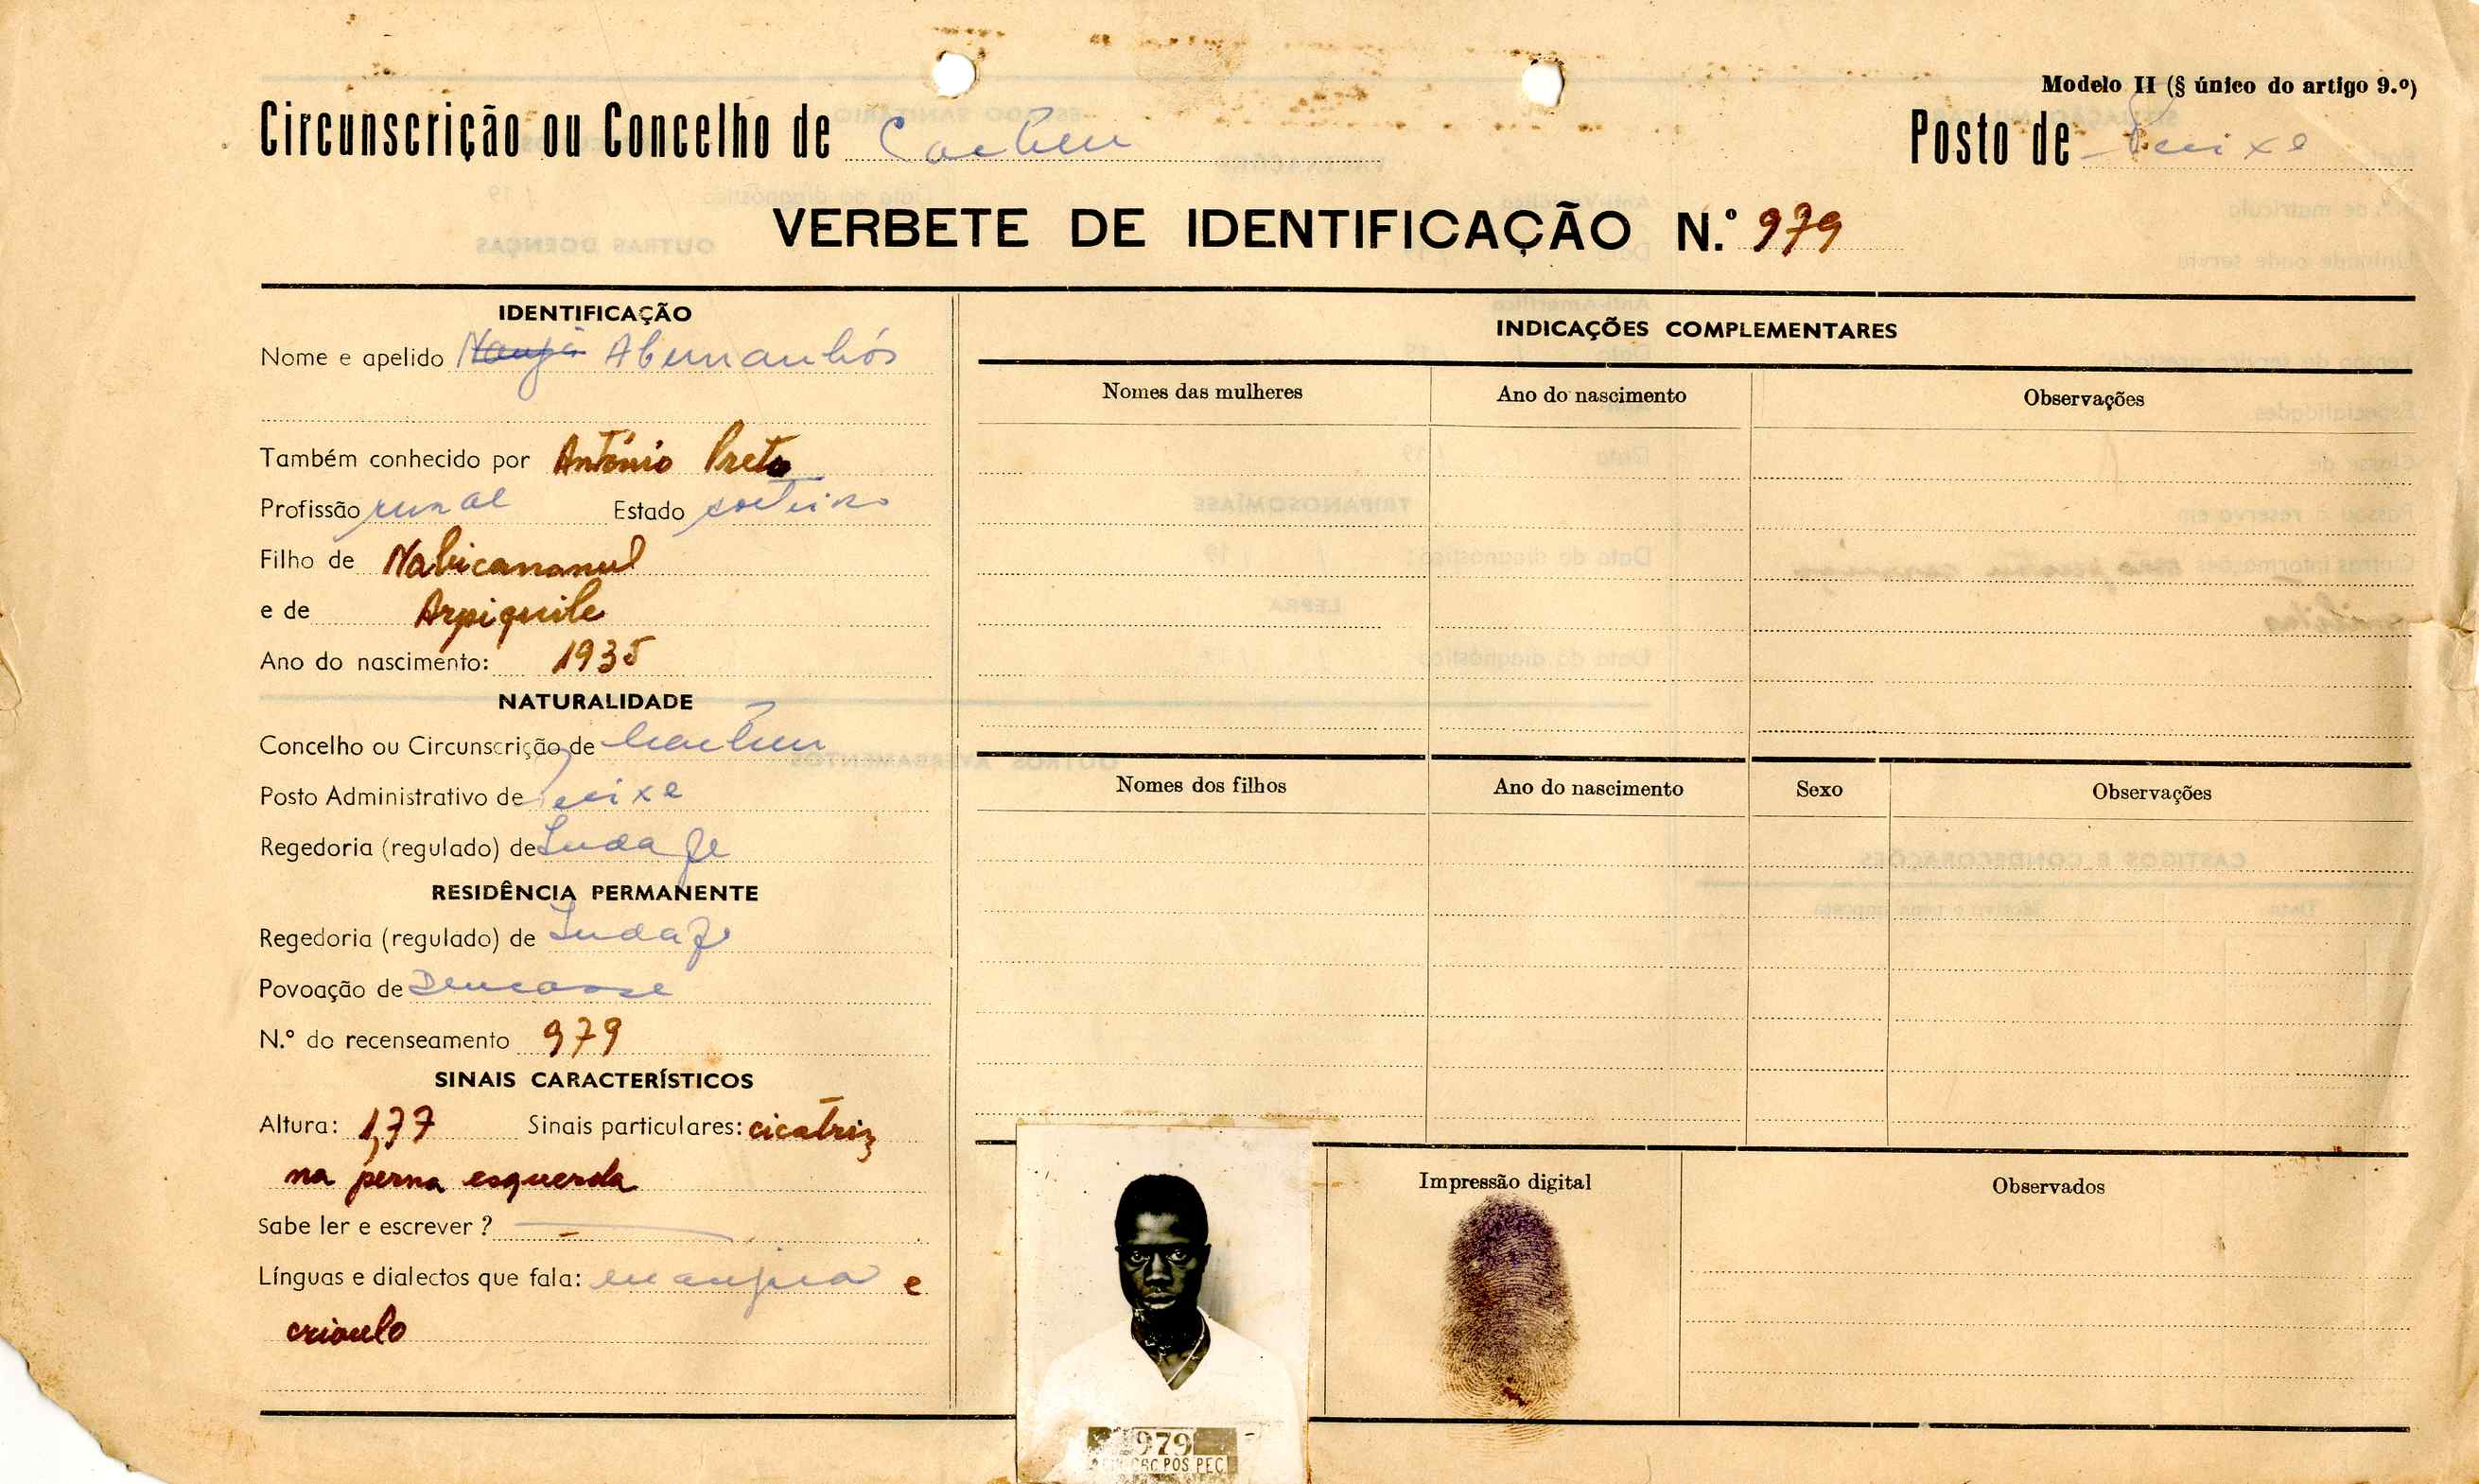 Modelo II (§ único do artigo 9.º)
Circunscrição ou Concelho de Cacheu Posto de Peixe
VERBETE DE IDENTIFICAÇÃO N.º 979
IDENTIFICAÇÃO
Nome e apelido
Também conhecido por António Preto
Profissão rural Estado solteiro
Filho de Nabicananul
e de Arpiquile
Ano do nascimento: 1935
NATURALIDADE
Concelho ou Circunscrição de Cacheu
Posto Administrativo de Peixe
Regedoria (regulado) de
RESIDÊNCIA PERMANENTE
Regedoria (regulado) de
Povoação de
N.º do recenseamento 979
SINAIS CARACTERÍSTICOS
Altura: 1,77 Sinais particulares: cicatriz
na perna esquerda
Sabe ler e escrever ?
Línguas e dialectos que fala: e
crioulo
INDICAÇÕES COMPLEMENTARES
Nomes das mulheres Ano do nascimento Observações
Nomes dos filhos Ano do nascimento Sexo Observações
Impressão digital
Observados
979
POS PEC